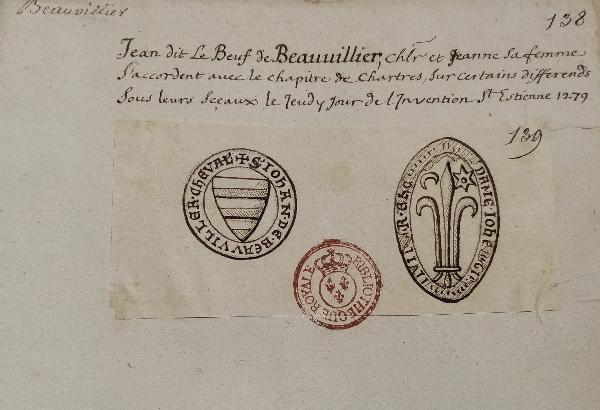 Beauvillier
138
Jean dit Le Beuf de Beauvillier, Chlr et Jeanne sa femme
s'accordent avec le chapitre de Chartres, sur certains differends
sous leurs sceaux le Jeudy Jour de l'Invention St Estienne 1279
139
✝ S IOHAN · DE · BEAVVILLER · CHEVAL
DAME IOHE
BIBLIOTHEQUE ROYALE